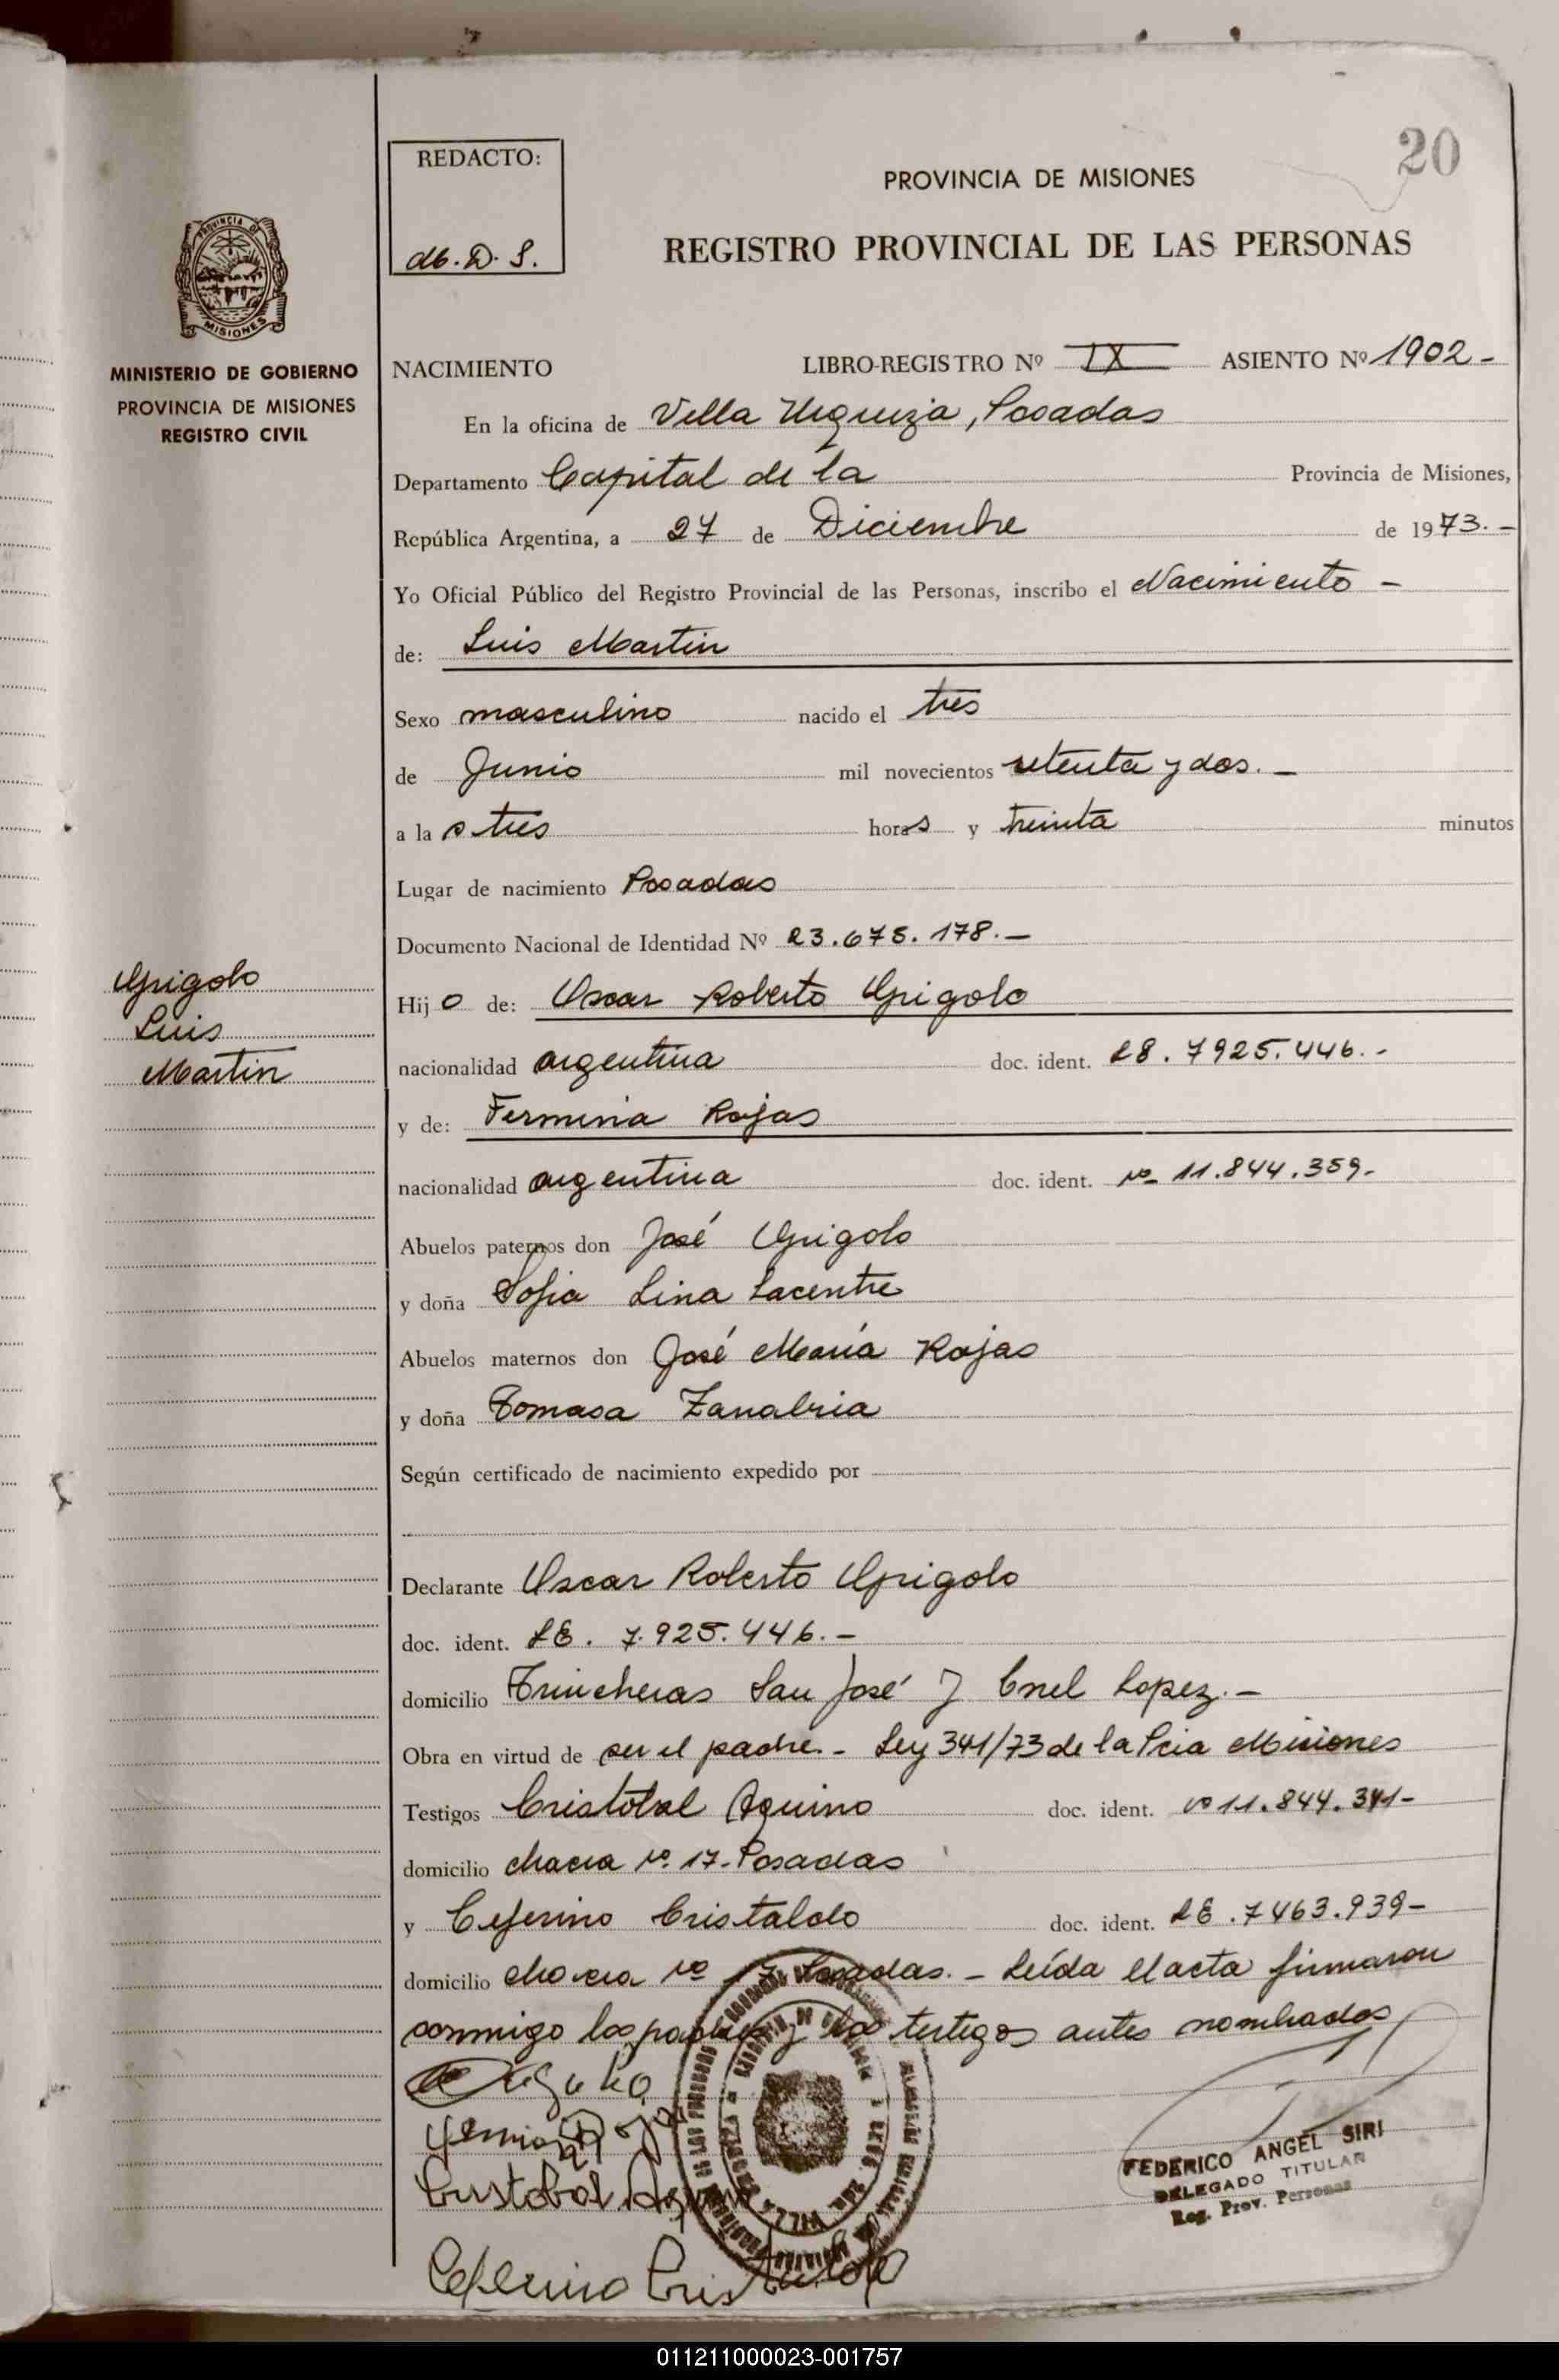 20
REDACTO:
M. D. S.
PROVINCIA DE MISIONES
REGISTRO PROVINCIAL DE LAS PERSONAS
PROVINCIA DE
MISIONES
MINISTERIO DE GOBIERNO
PROVINCIA DE MISIONES
REGISTRO CIVIL
NACIMIENTO LIBRO-REGISTRO Nº IX ASIENTO Nº 1902-
En la oficina de Villa Urquiza, Posadas
Departamento Capital de la Provincia de Misiones,
República Argentina, a 27 de Diciembre de 1973.-
Yo Oficial Público del Registro Provincial de las Personas, inscribo el Nacimiento -
de: Luis Martin
Sexo masculino nacido el tres
de Junio mil novecientos setenta y dos.-
a las tres horas y treinta minutos
Lugar de nacimiento Posadas
Documento Nacional de Identidad Nº 23.675.178.-
Grigolo
Luis
Martin
Hijo de: Oscar Roberto Grigolo
nacionalidad argentina doc. ident. LE. 7925.446.-
y de: Fermina Rojas
nacionalidad argentina doc. ident. Nº 11.844.359-
Abuelos paternos don José Grigolo
y doña Sofia Lina Lacentre
Abuelos maternos don José María Rojas
y doña Tomasa Zanabria
Según certificado de nacimiento expedido por
Declarante Oscar Roberto Grigolo
doc. ident. LE. 7.925.446.-
domicilio Trincheras San José y Cnel Lopez.-
Obra en virtud de ser el padre.- Ley 341/73 de la Pcia Misiones
Testigos Cristobal Aquino doc. ident. Nº 11.844.341-
domicilio chacra Nº 17-Posadas
y Ceferino Cristaldo doc. ident. LE. 7463.939-
domicilio chacra Nº 17 Posadas.- Leída el acta firmaron
conmigo los padres y los testigos antes nombrados
Cristobal Aquino
Ceferino Cristaldo
FEDERICO ANGEL SIRI
DELEGADO TITULAR
Reg. Prov. Personas
011211000023-001757